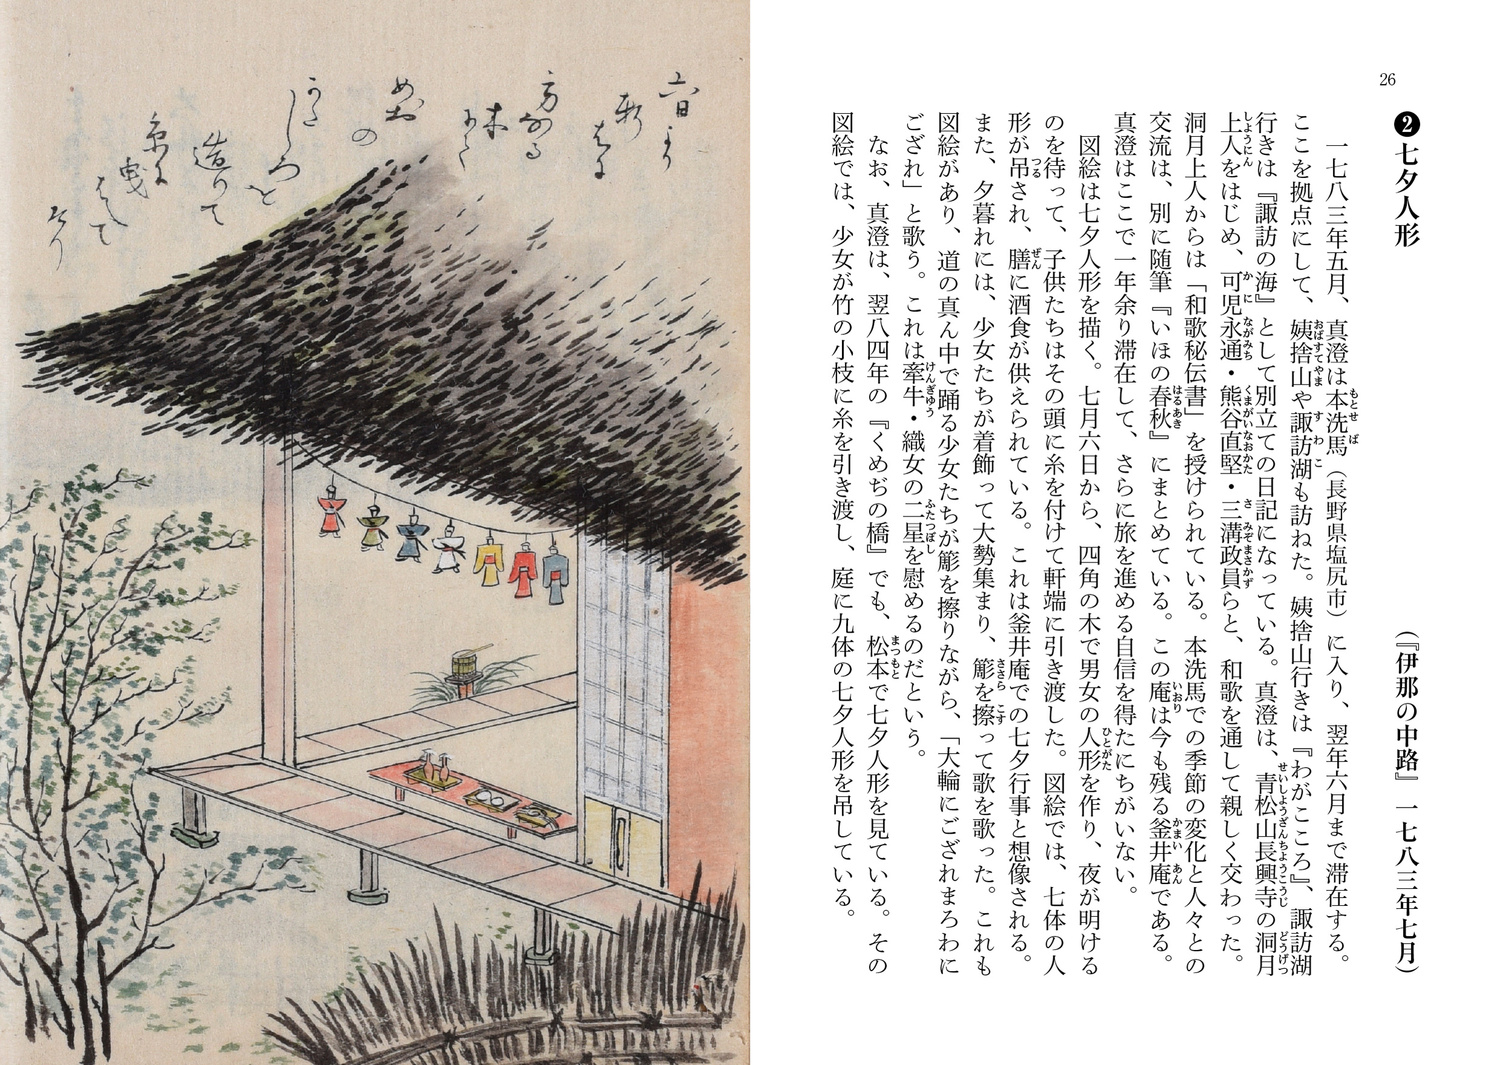 26
❷七夕人形
(『伊那の中路』一七八三年七月)
一七八三年五月、真澄は本洗馬（長野県塩尻市）に入り、翌年六月まで滞在する。
ここを拠点にして、姨捨山や諏訪湖も訪ねた。姨捨山行きは『わがこころ』、諏訪湖
行きは『諏訪の海』として別立ての日記になっている。真澄は、青松山長興寺の洞月
上人をはじめ、可児永通・熊谷直堅・三溝政員らと、和歌を通して親しく交わった。
洞月上人からは「和歌秘伝書」を授けられている。本洗馬での季節の変化と人々との
交流は、別に随筆『いほの春秋』にまとめている。この庵は今も残る釜井庵である。
真澄はここで一年余り滞在して、さらに旅を進める自信を得たにちがいない。
図絵は七夕人形を描く。七月六日から、四角の木で男女の人形を作り、夜が明ける
のを待って、子供たちはその頭に糸を付けて軒端に引き渡した。図絵では、七体の人
形が吊され、膳に酒食が供えられている。これは釜井庵での七夕行事と想像される。
また、夕暮れには、少女たちが着飾って大勢集まり、簓を擦って歌を歌った。これも
図絵があり、道の真ん中で踊る少女たちが簓を擦りながら、「大輪にござれまろわに
ござれ」と歌う。これは牽牛・織女の二星を慰めるのだという。
なお、真澄は、翌八四年の『くめぢの橋』でも、松本で七夕人形を見ている。その
図絵では、少女が竹の小枝に糸を引き渡し、庭に九体の七夕人形を吊している。
六日より
方なる
木にて
の
造りて
糸に
曳